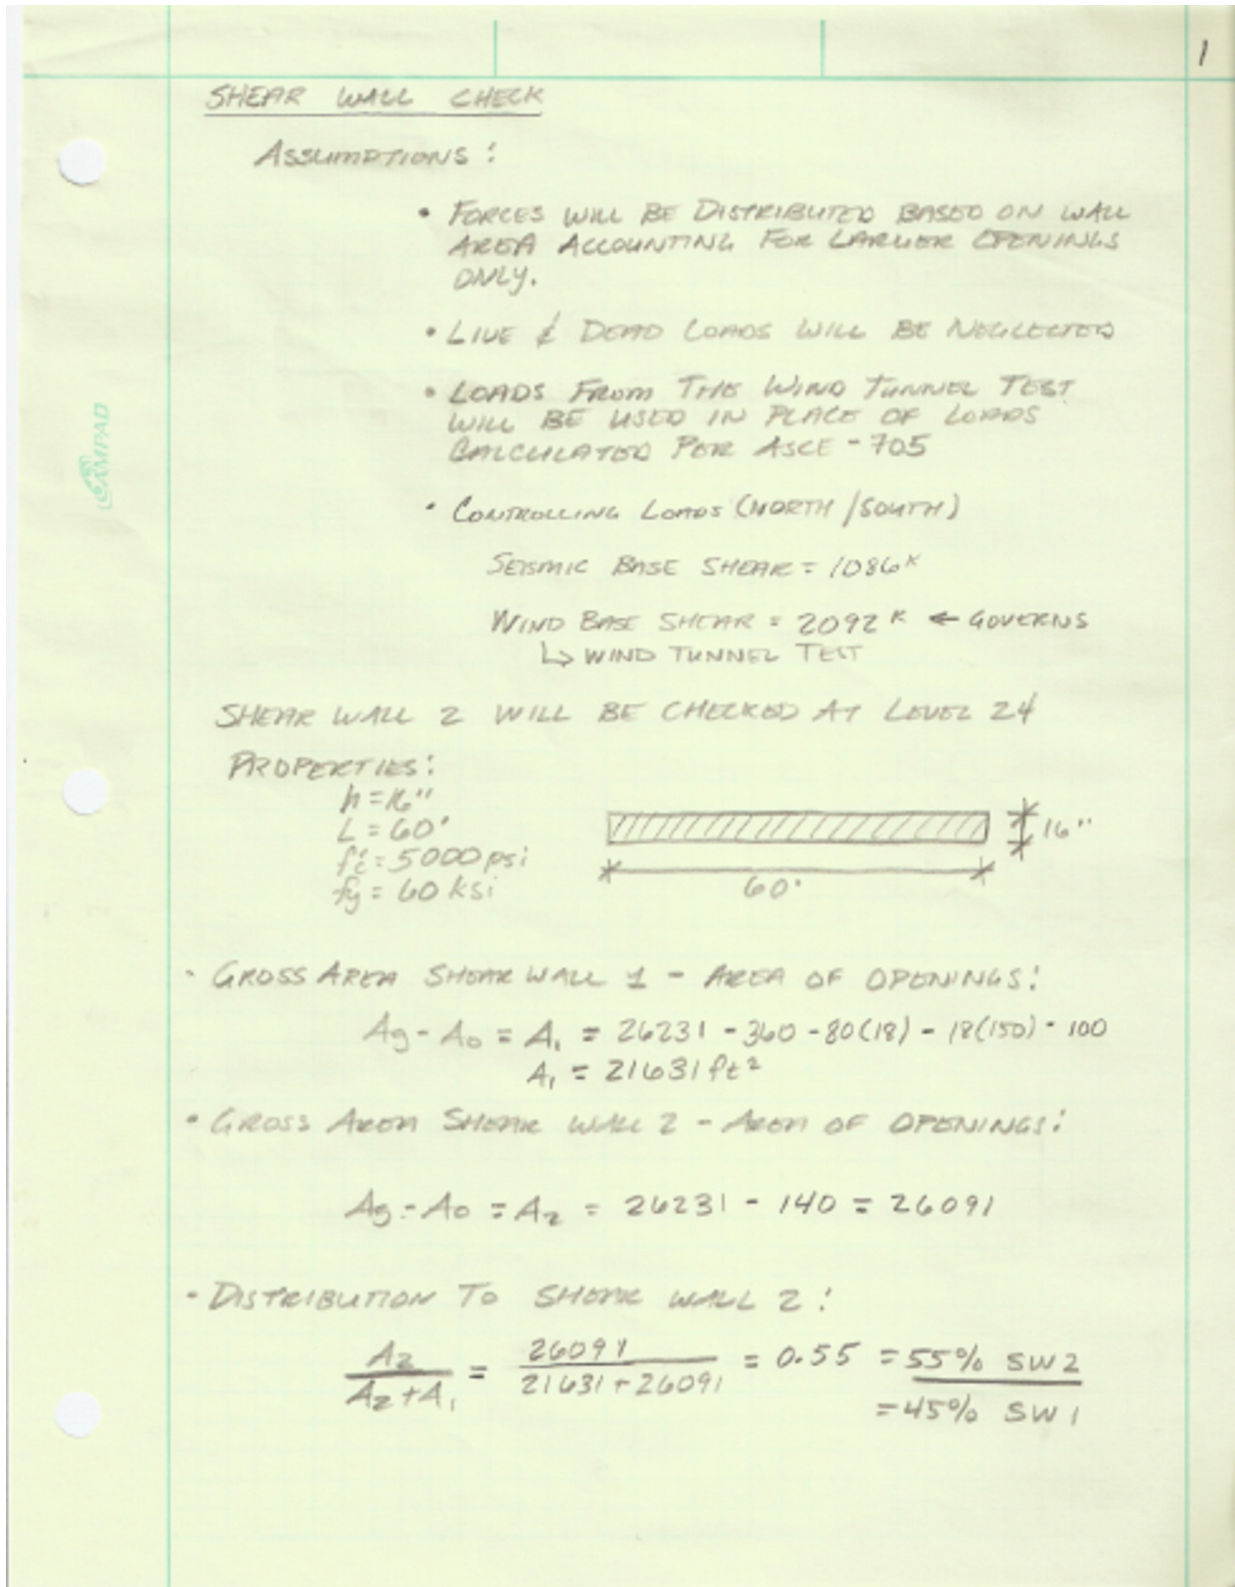 1
SHEAR WALL CHECK
ASSUMPTIONS:
• FORCES WILL BE DISTRIBUTED BASED ON WALL
AREA ACCOUNTING FOR LARGER OPENINGS
ONLY.
• LIVE & DEAD LOADS WILL BE NEGLECTED
• LOADS FROM THE WIND TUNNEL TEST
WILL BE USED IN PLACE OF LOADS
CALCULATED PER ASCE-705
• CONTROLLING LOADS (NORTH/SOUTH)
SEISMIC BASE SHEAR = 1086ᴷ
WIND BASE SHEAR = 2092ᴷ ← GOVERNS
↳ WIND TUNNEL TEST
SHEAR WALL 2 WILL BE CHECKED AT LEVEL 24
PROPERTIES:
h = 16"
L = 60'
f'c = 5000 psi
fy = 60 ksi
16"
60'
CAMPAD
- GROSS AREA SHEAR WALL 1 - AREA OF OPENINGS:
Ag - Ao = A₁ = 26231 - 360 - 80(18) - 18(150) - 100
A₁ = 21631 ft²
• GROSS AREA SHEAR WALL 2 - AREA OF OPENINGS:
Ag - Ao = A₂ = 26231 - 140 = 26091
- DISTRIBUTION TO SHEAR WALL 2:
A₂ / (A₂ + A₁) = 26091 / (21631 + 26091) = 0.55 = 55% SW2
= 45% SW1